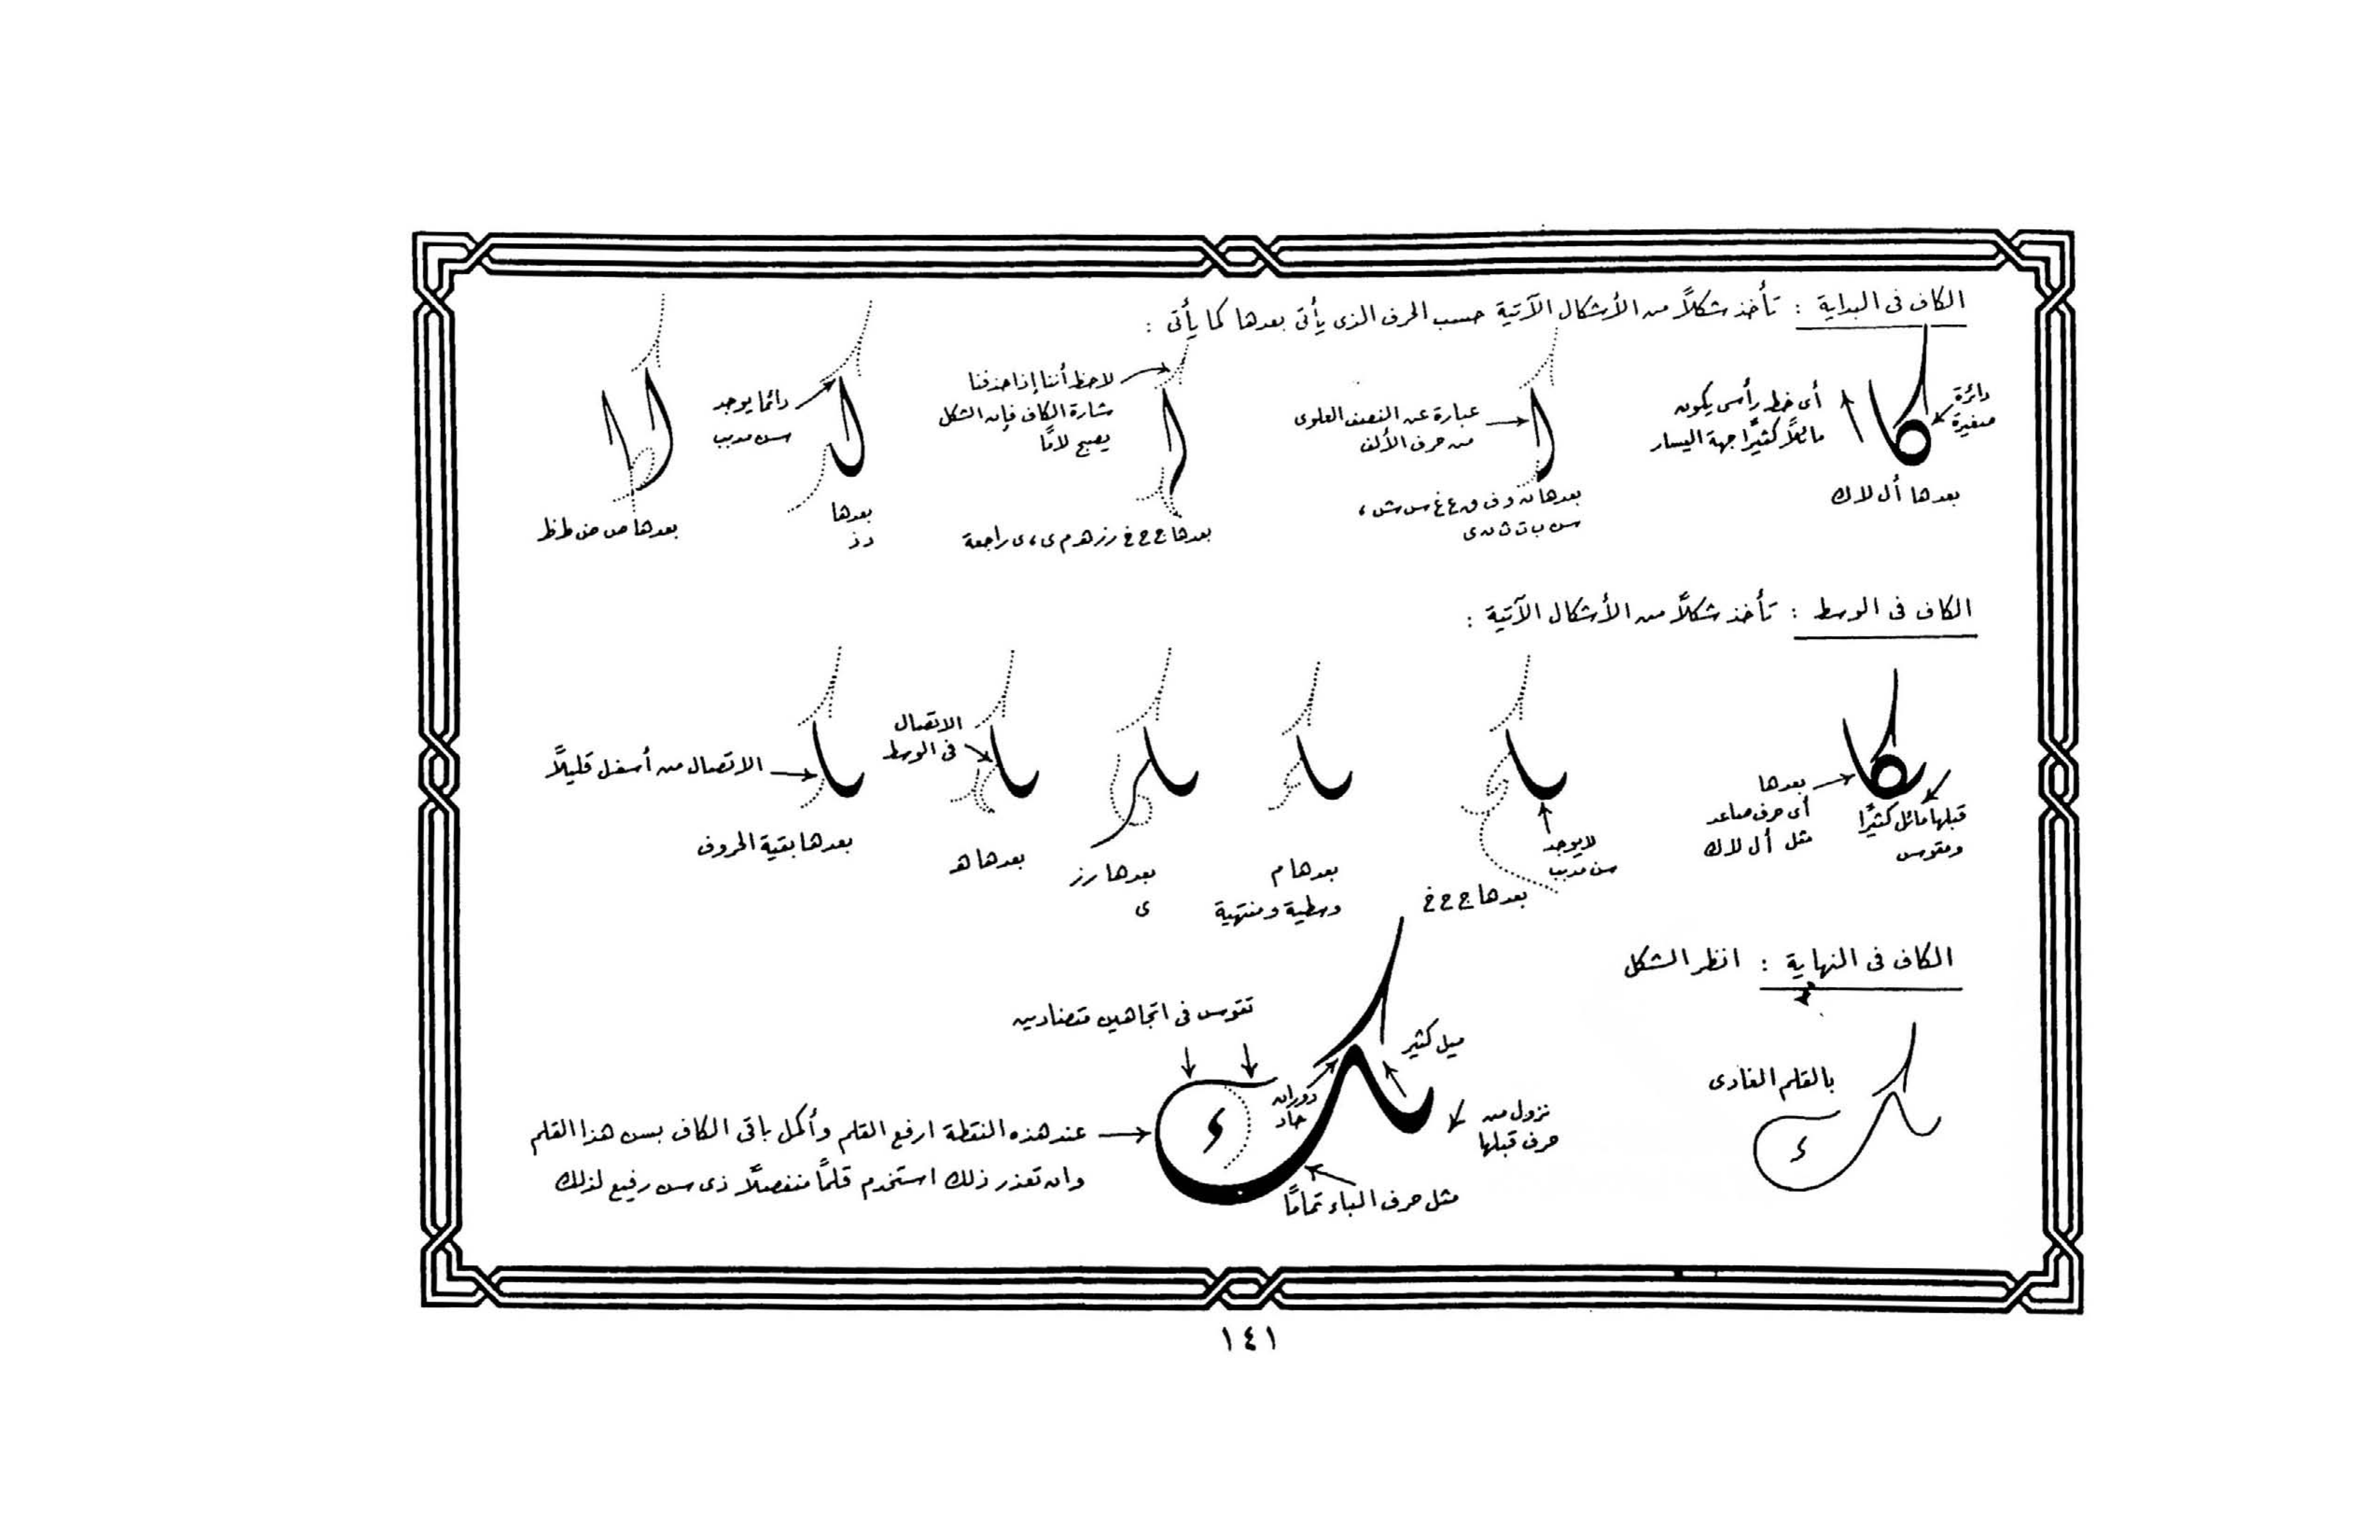 الكاف فى البداية : تأخذ شكلاً من الأشكال الآتية حسب الحرف الذى يأتى بعدها كما يأتى :
دائرة
صغيرة
أى خط رأسى يكون
مائلاً كثيرًا جهة اليسار
بعدها أ ل لا ك
عبارة عن النصف العلوى
من حرف الألف
بعدها ن و ف ق ع غ س ش ،
س ب ت ث ن ى
لاحظ أننا إذا حذفنا
شارة الكاف فإن الشكل
يصبح لامًا
بعدها ج ح خ ر ز هـ م ى ، ى راجعة
دائما يوجد
سن مدبب
بعدها
د ذ
بعدها ص ض ط ظ
الكاف فى الوسط : تأخذ شكلاً من الأشكال الآتية :
بعدها
أى حرف صاعد
مثل أ ل لا ك
قبلها مائل كثيرًا
ومقوس
لا يوجد
سن مدبب
بعدها ج ح خ
بعدها م
وسطية ومنتهية
بعدها ر ز
ى
الاتصال
فى الوسط
بعدها هـ
الاتصال من أسفل قليلاً
بعدها بقية الحروف
الكاف فى النهاية : انظر الشكل
بالقلم العادى
تقوس فى اتجاهين متضادين
ميل كثير
دوران
حاد
نزول من
حرف قبلها
عند هذه النقطة ارفع القلم وأكمل باقى الكاف بسن هذا القلم
وإن تعذر ذلك استخدم قلمًا منفصلاً ذى سن رفيع لذلك
مثل حرف الباء تمامًا
١٤١